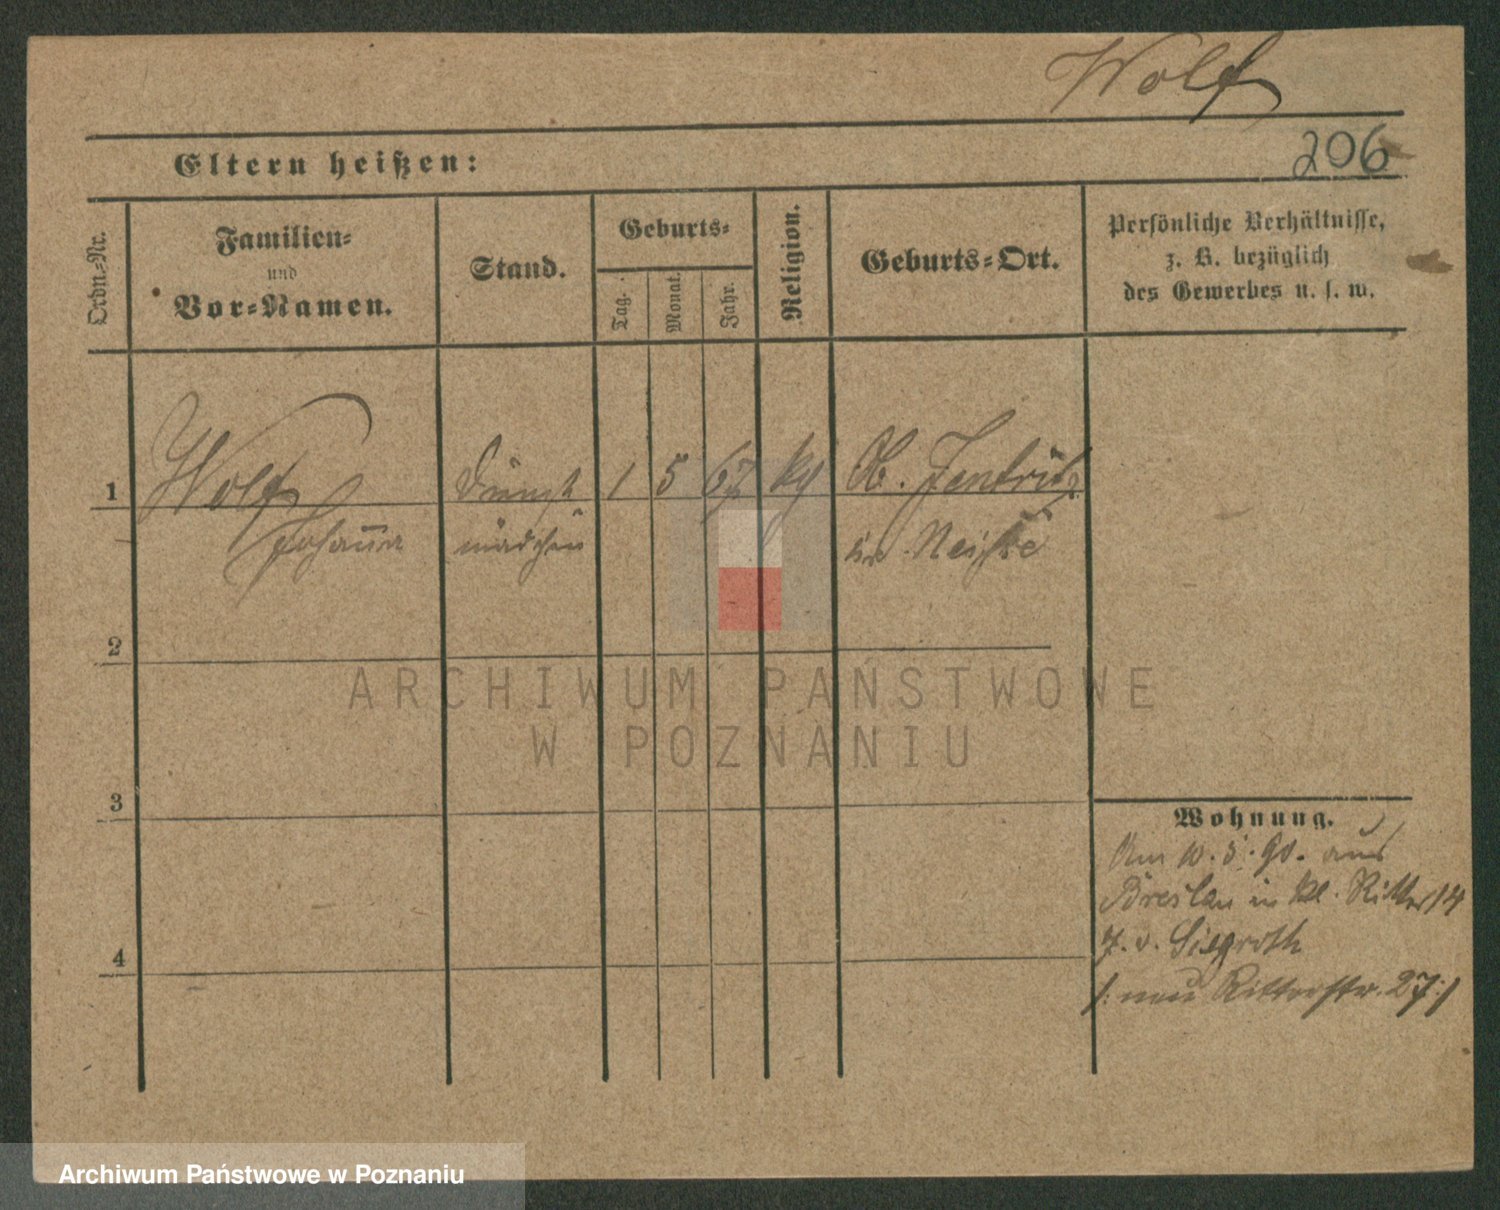 Wolf
206
Eltern heißen:
Ordn.=Nr.
Familien=
und
Vor=Namen.
Stand.
Geburts=
Tag.
Monat.
Jahr.
Religion.
Geburts=Ort.
Persönliche Verhältnisse,
z. B. bezüglich
des Gewerbes u. s. w.
1
Wolf
Johanna
Dienst
mädchen
1
5
67
Ob. Jentritz
Kr. Neisse
2
3
4
Wohnung.
Am 10.5.90. aus
Breslau in Kl. Ritter 14
v. Siegroth
/: neu Ritterstr. 27 :/
ARCHIWUM PAŃSTWOWE
W POZNANIU
Archiwum Państwowe w Poznaniu